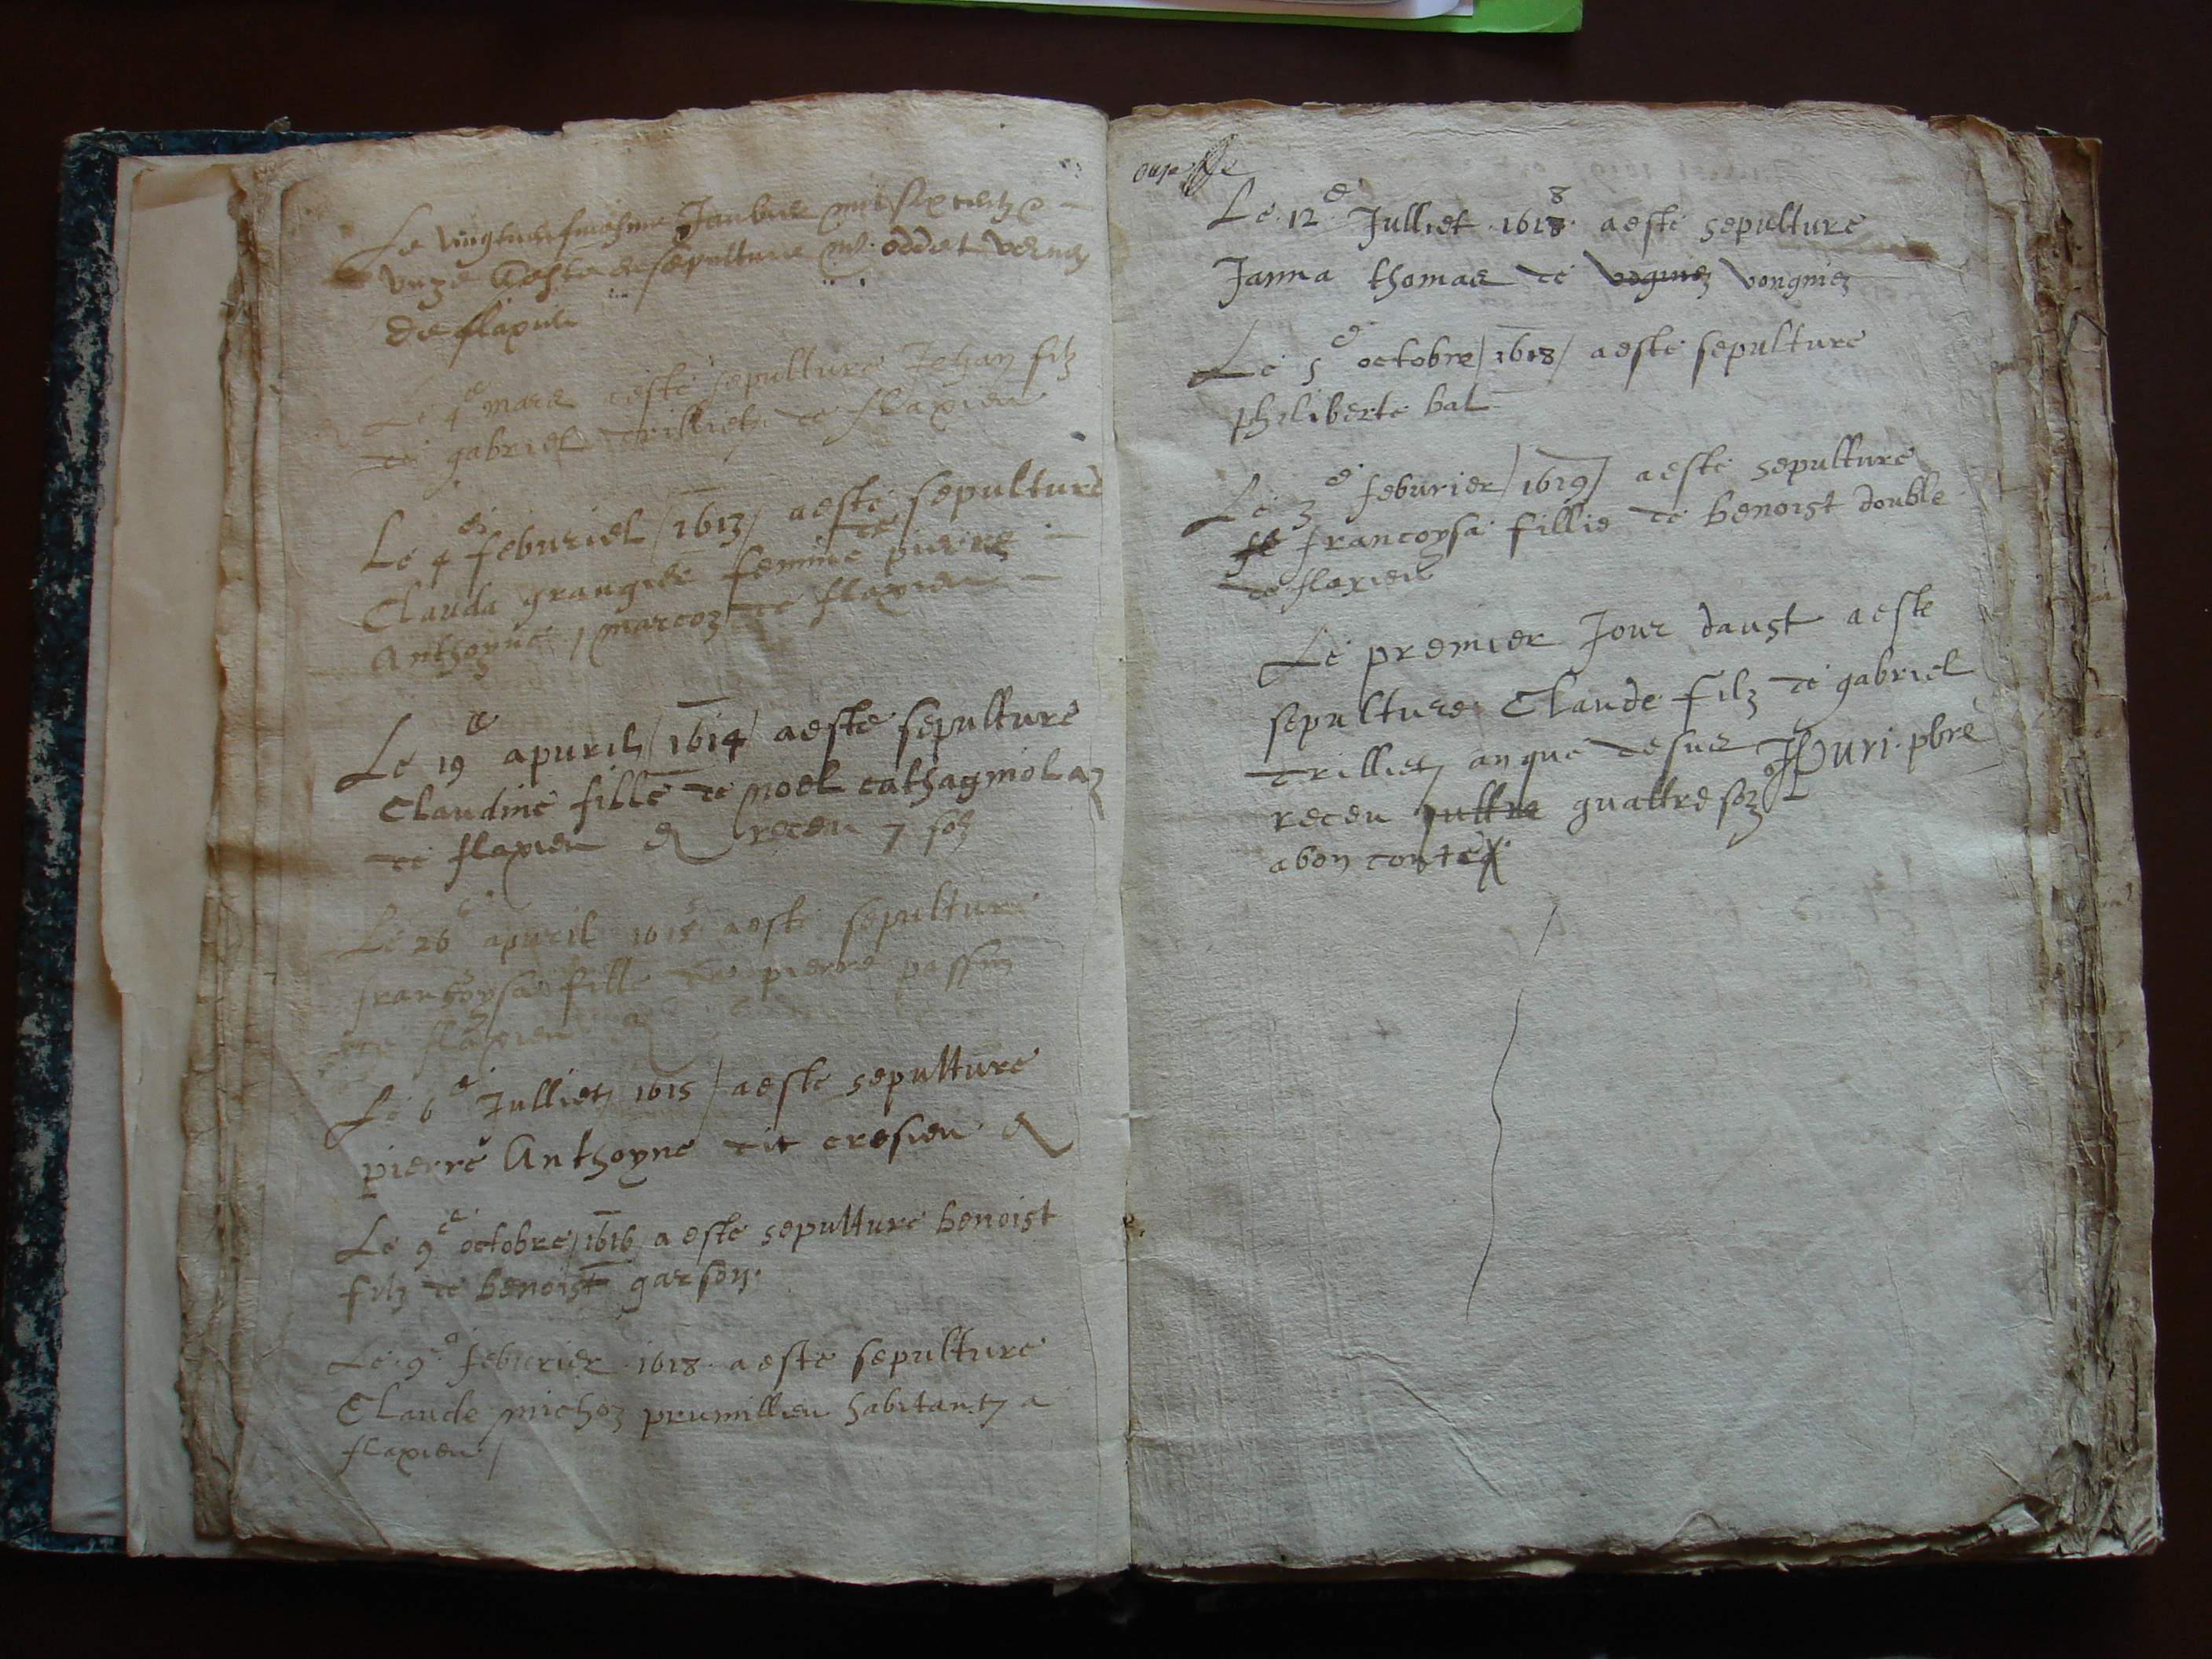 Le vingtneufviesme Janvier mil six centz
unze a este sepulture mr. oddet vernez
de flaxieu
Le 4e mars aeste sepulture Jehan filz
de gabriel trilliet de flaxieu
Le 4e feburier /1613/ aeste sepulture
Clauda grangier femme de pierre
Anthoyne / marcoz de flaxieu
Le 19e apuril /1614/ aeste sepulture
Claudine fille de noel cathagniolaz
de flaxieu & receu 7 solz
Le 26e apuril 1615 aeste sepulture
francoysa fille de pierre passin
de flaxieu
Le 6e Julliet 1615 / aeste sepulture
pierre Anthoyne dit cresieu
Le 9e octobre /1616/ aeste sepulture benoist
filz de benoist garson.
Le 9e feburier 1618 aeste sepulture
Claude michoz prumillieu habitant a
flaxieu /
Le 12e Julliet 1618 8 aeste sepulture
Janna thomas de vogniez vongniez
Le 5e octobre /1618/ aeste sepulture
philiberte bal
Le 3e feburier /1619/ aeste sepulture
francoysa fillie de benoist double
de flaxieu
Le premier Jour daust aeste
sepulture Claude filz de gabriel
trilliet an que desus
receu quattre solz puri pbre
a bon conte